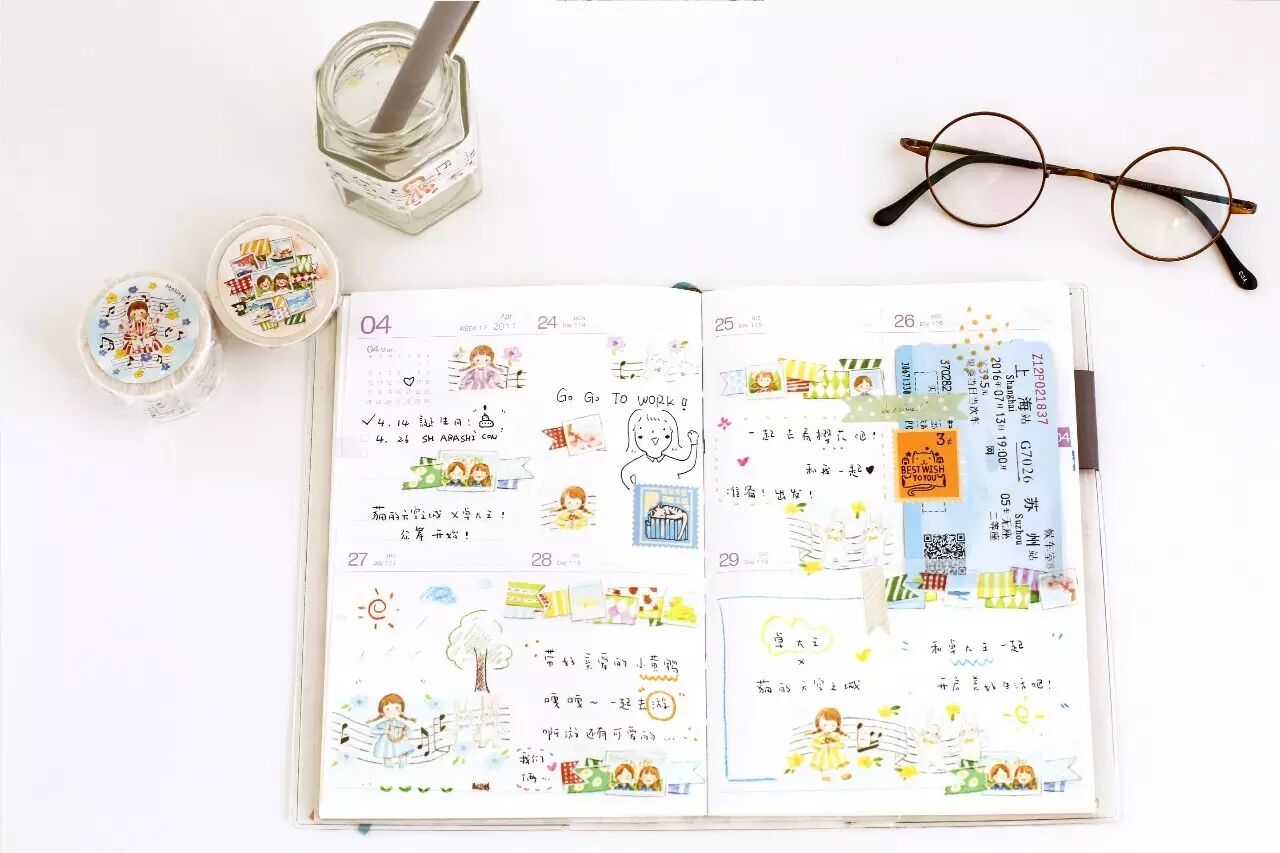 04
Apr
WEEK 17 2017
04 Mar.
✓4.14 誕生日!
4.26 SH ARASHI CON
萠的天空之城 X 卓大王!
众筹开始!
24 MON
Day 114
GO GO TO WORK!
27 THU
Day 117
28 FRI
Day 118
带好亲爱的小黄鸭
嘎嘎~一起去"游"
啊游还有可爱的...
我们
俩...
25 TUE
Day 115
一起去看樱花吧!
和我一起♥
准备!出发!
26 WED
Day 116
Z12P021837
上海站 G7026 苏州站
Shanghai Suzhou
2016年07月13日19:00开 05车无座
¥39.5元 网 二等座
限乘当日当次车
候车室8
370282
3
BEST WISH
TO YOU
04
29 SAT
Day 119
卓大王
x
萠的天空之城
和卓大王一起
开启美好生活吧!